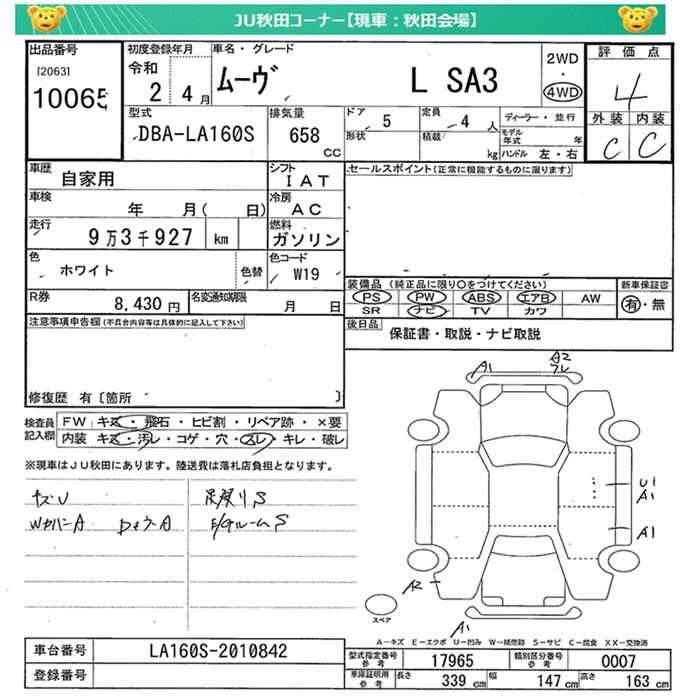 JU秋田コーナー【現車：秋田会場】
出品番号
[2063]
10065
初度登録年月
令和
2 4月
車名・グレード
ムーヴ L SA3
2WD
・
4WD
評価点
4
外装 内装
C C
型式
DBA-LA160S
排気量
658
CC
ドア
5
定員
4 人
形状
積載
kg
ディーラー・並行
モデル年式 年
ハンドル 左・右
車歴
自家用
シフト
IAT
セールスポイント(正常に機能するものに限ります)
車検
年 月( 日)
冷房
AC
走行
9万3千927 km
燃料
ガソリン
色
ホワイト
色替
色コード
W19
装備品 (純正品に限り○をつけてください)
PS PW ABS エアB AW
SR ナビ TV カワ
新車保証書
有・無
R券
8,430円
名変通知期限
月 日
後日品
保証書・取説・ナビ取説
注意事項申告欄(不具合内容等は具体的に記入して下さい)
修復歴 有〔箇所 〕
検査員記入欄
FW キズ・飛石・ヒビ割・リペア跡・×要
内装 キズ・汚レ・コゲ・穴・スレ・キレ・破レ
※現車はJU秋田にあります。陸送費は落札店負担となります。
キズU
足廻りS
WカバーA
DミラーA
E/GルームS
A1
A2
フレ
U1
A1
A1
A2
A1
スペア
A－キズ E－エクボ U－凹み W－補修跡 S－サビ C－腐食 XX－交換済
車台番号
LA160S-2010842
登録番号
型式指定番号参考
17965
類別区分番号参考
0007
車庫証明用参考
長さ 339 cm
幅 147 cm
高さ 163 cm